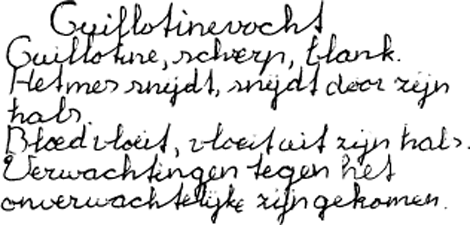 Guillotinevocht
Guillotine, scherp, blank.
Het mes snijdt, snijdt door zijn
hals.
Bloed vloeit, vloeit uit zijn hals.
Verwachtingen tegen het
onverwachtelijke zijn gekomen.